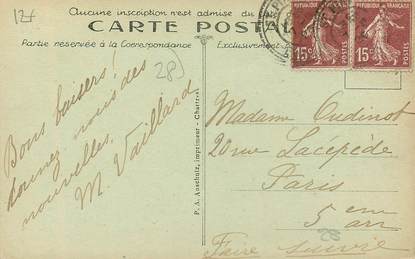 12f
Aucune inscription n'est admise du
CARTE POSTAL
Partie réservée à la Correspondance
Exclusivement
REPUBLIQUE FRANÇAISE
15c
POSTES
REPUBLIQUE FRANÇAISE
15c
POSTES
283
Bons baisers !
donnez nous des
nouvelles.
M. Vaillard
P. A. Aeschutz, imprimeur - Chartres
Madame Oudinot
20 rue Lacépède
Paris
5 eme
arr
28
Faire suivre